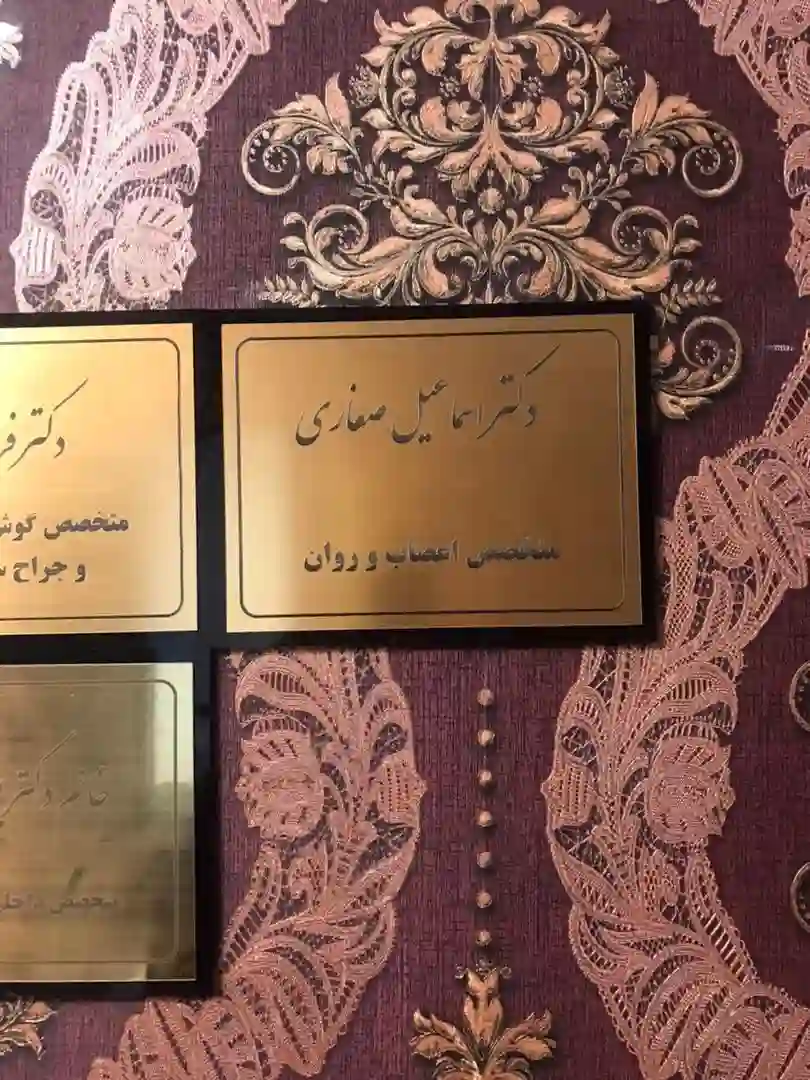 دکتر اسماعیل صفاری
متخصص اعصاب و روان
دکتر
متخصص گوش
و جراح
خانم دکتر
متخصص داخلی